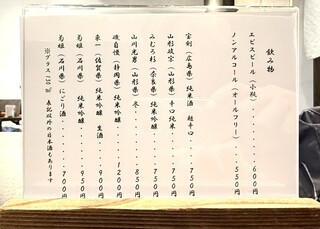 飲み物
エビスビール（小瓶）．．．．．．．．．６００円
ノンアルコール（オールフリー）．．．．．５５０円
宝剣（広島県）純米酒　超辛口．．．．７５０円
山形政宗（山形県）辛口純米．．．．．７５０円
みむろ杉（奈良県）純米吟醸．．．．．７５０円
山川光男（山形県）冬．．．．．．．．８５０円
磯自慢（静岡県）純米吟醸．．．．．１２００円
東一（佐賀県）純米吟醸　生酒．．．．９００円
菊姫（石川県）純米酒．．．．．．．．９５０円
菊姫（石川県）にごり酒．．．．．．．７００円
※グラス１３０㎖　表記以外の日本酒もあります